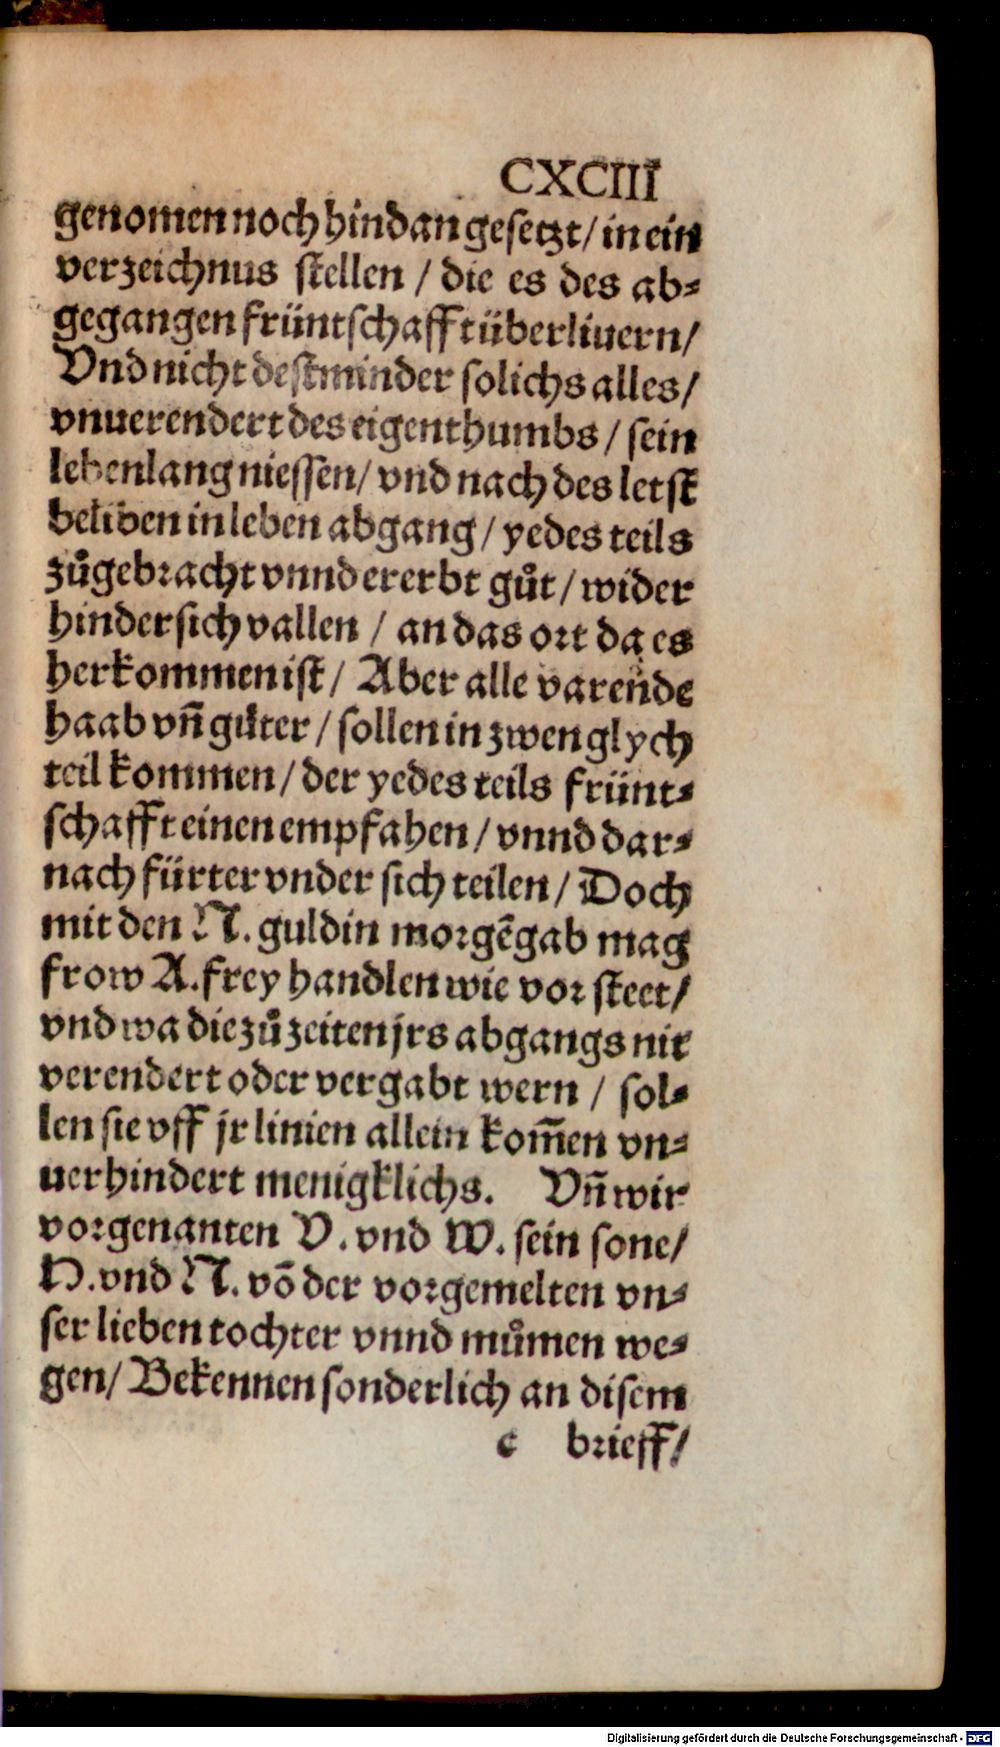 CXCIII
genomen noch hindan gesetzt / in ein
verzeichnus stellen / die es des ab⸗
gegangen früntschafft überliuern /
Vnd nicht destminder solichs alles /
vnuerendert des eigenthumbs / sein
lebenlang niessen / vnd nach des letst
beliben in leben abgang / yedes teils
zůgebracht vnnd ererbt gůt / wider
hindersich vallen / an das ort da es
herkommen ist / Aber alle varende
haab vn̄ gůter / sollen in zwen glych
teil kommen / der yedes teils frünt⸗
schafft einen empfahen / vnnd dar⸗
nach fürter vnder sich teilen / Doch
mit den N. guldin morgēgab mag
frow A. frey handlen wie vor steet /
vnd wa die zů zeiten jrs abgangs nit
verendert oder vergabt wern / sol⸗
len sie vff jr linien allein kom̄en vn⸗
uerhindert menigklichs. Vn̄ wir
vorgenanten V. vnd W. sein sone /
H. vnd N. vō der vorgemelten vn⸗
ser lieben tochter vnnd můmen we⸗
gen / Bekennen sonderlich an disem
c brieff /
Digitalisierung gefördert durch die Deutsche Forschungsgemeinschaft - DFG